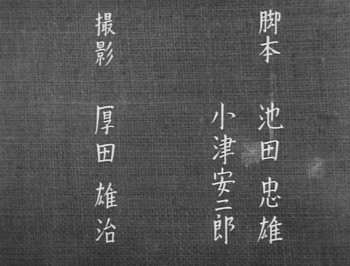 脚本 池田忠雄
小津安二郎
撮影 厚田雄治